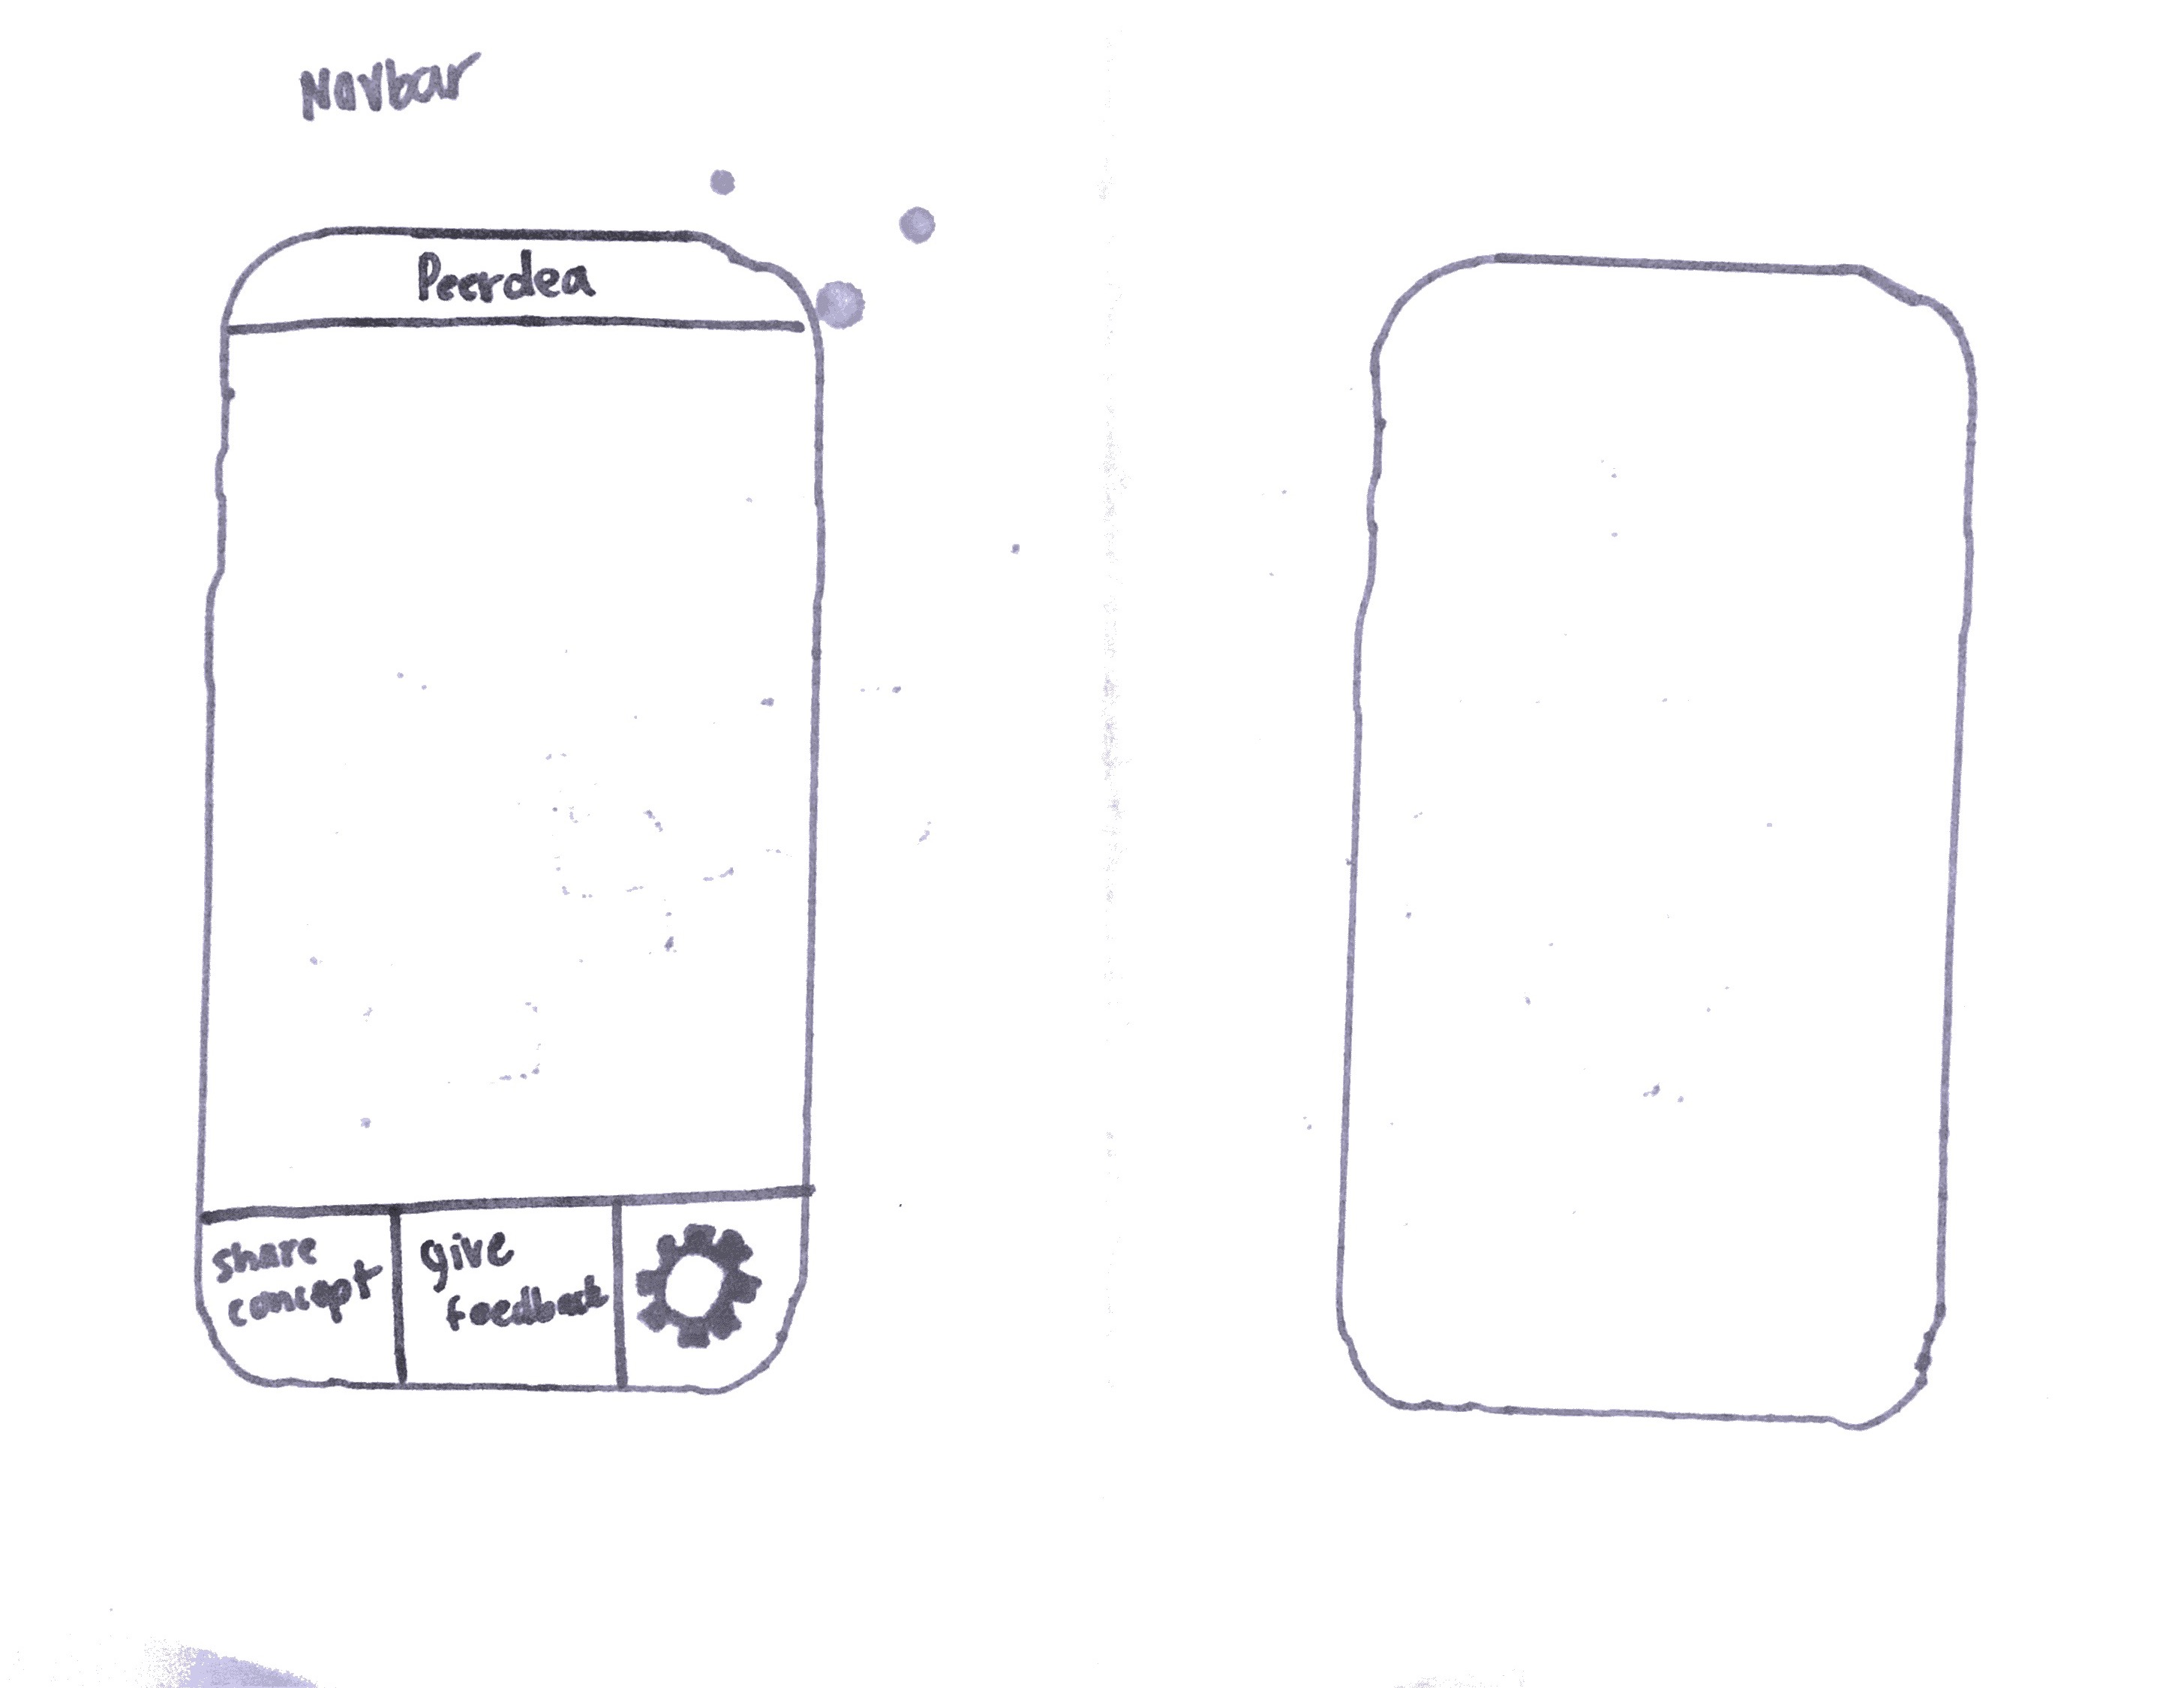 Navbar
Peerdea
share
concept
give
feedback